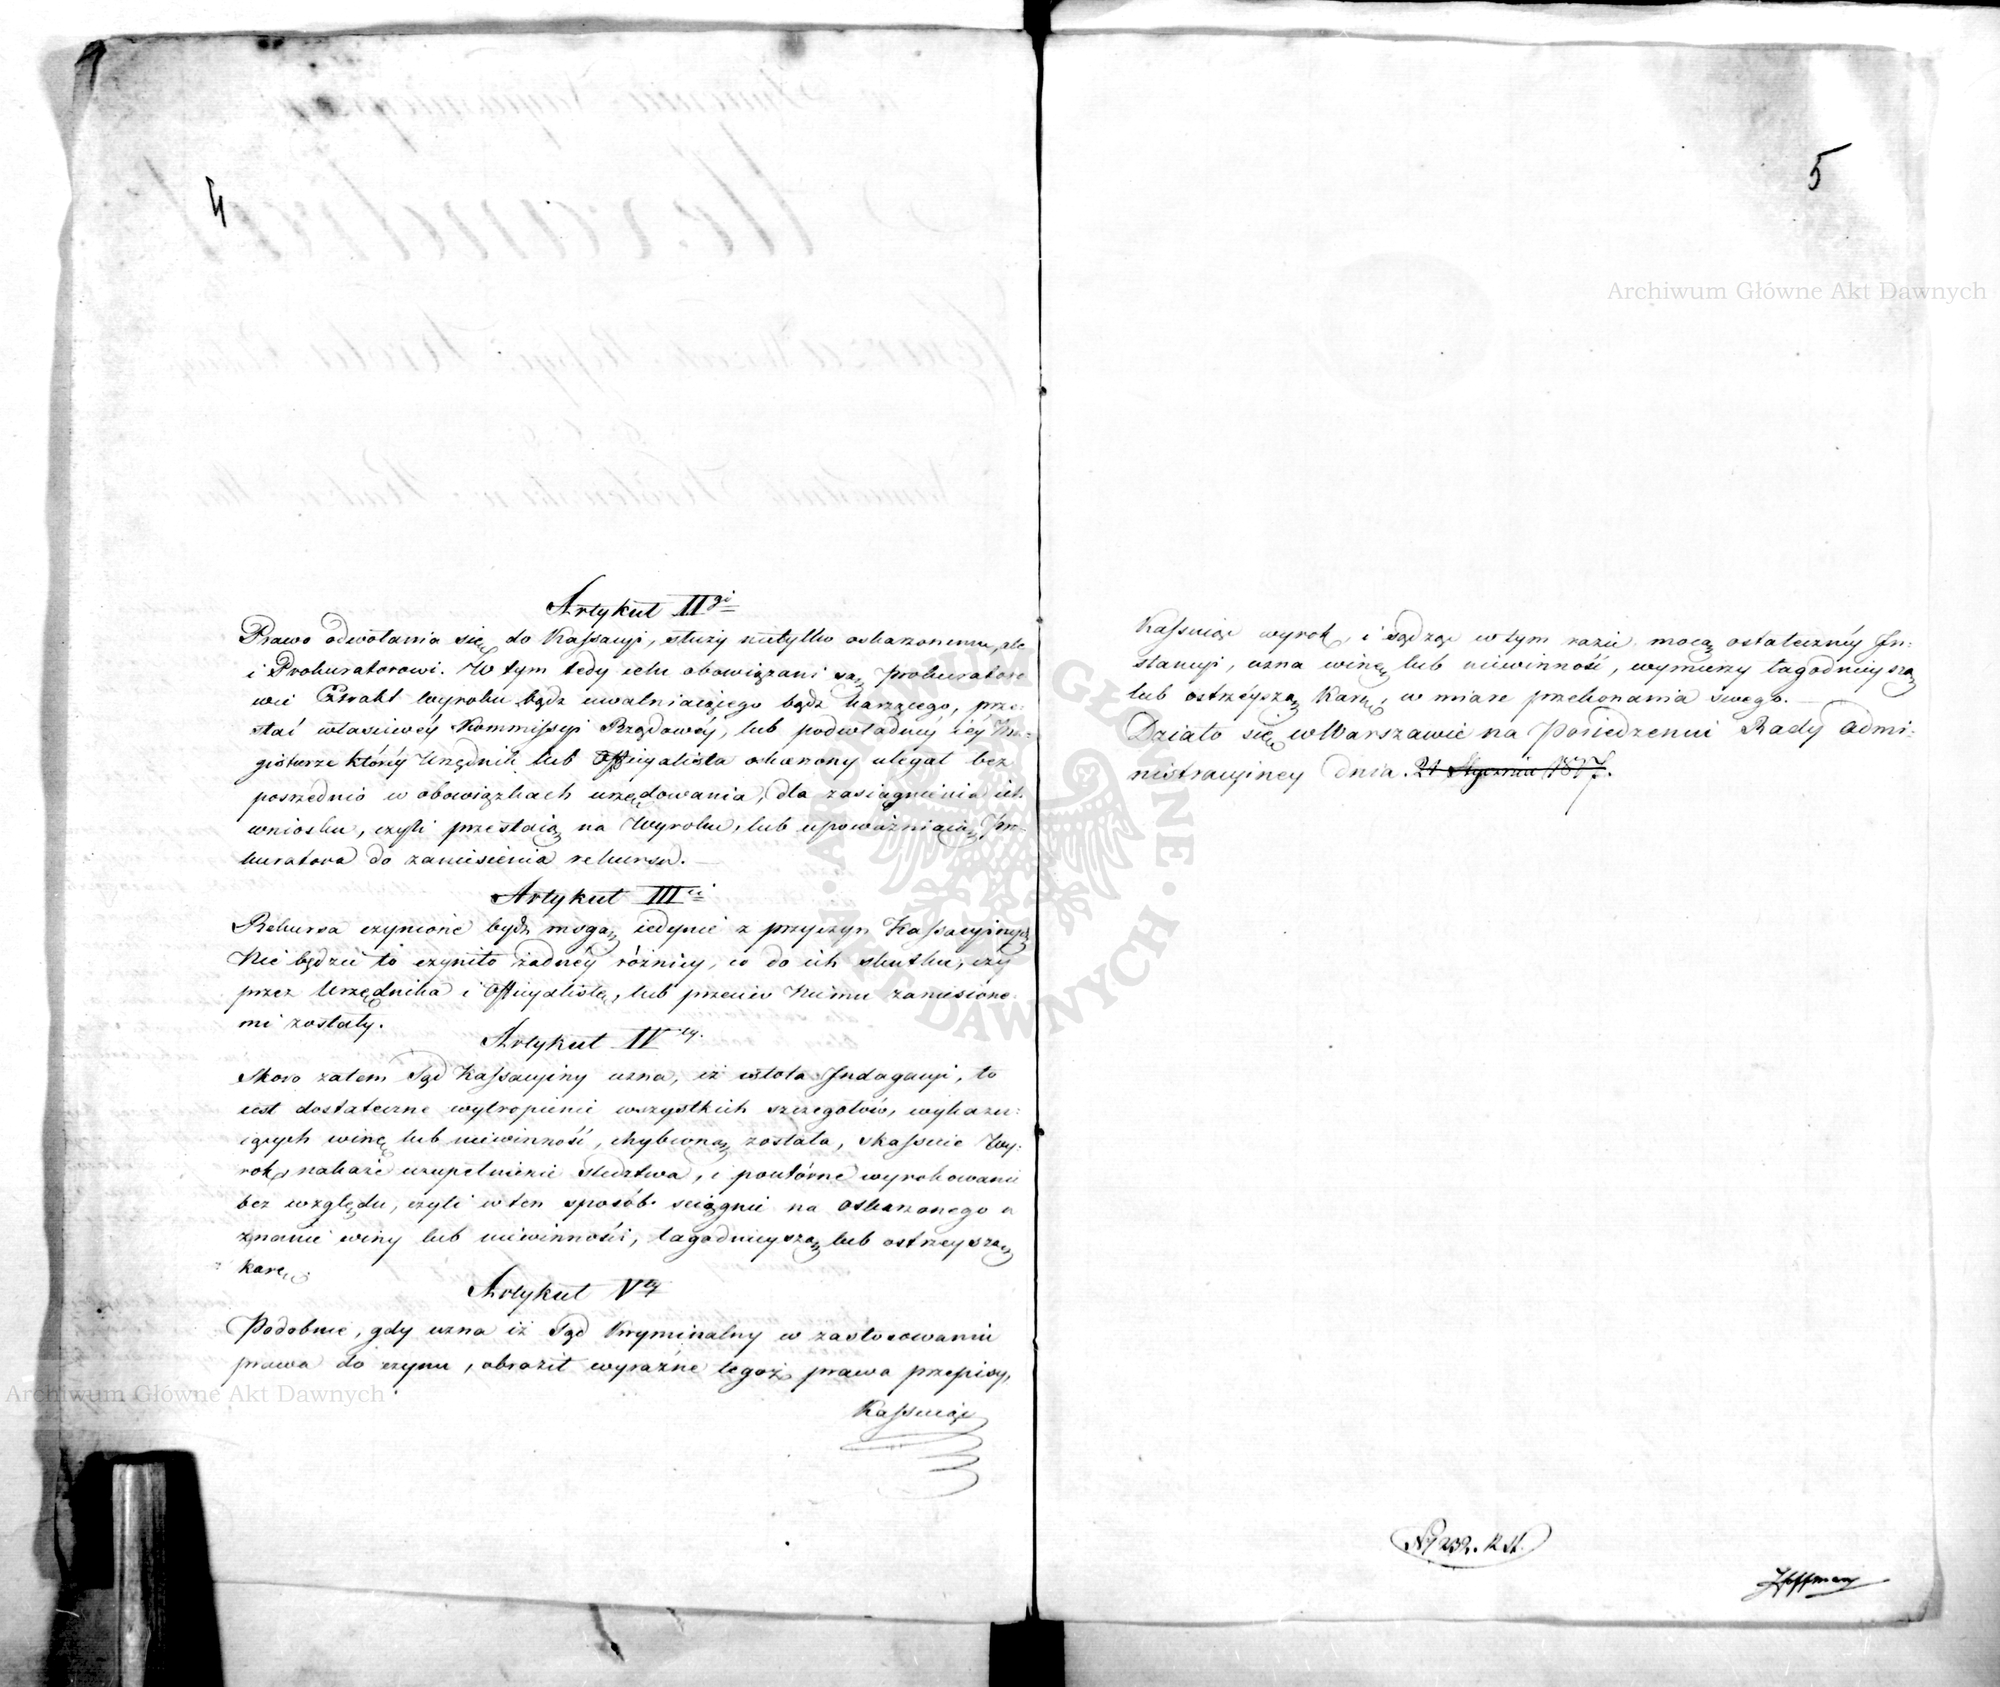 4
Artykuł II<sup>gi</sup>
Prawo odwołania się do Kassacyi, służy nietylko oskarżonemu, ale
i Prokuratorowi. W tym tedy celu obowiązani są Prokuratoro-
wie Extrakt wyroku bądź uwalniaiącego bądź karzącego, prze-
słać właściwéy Kommissyi Rządowéy, lub podwładnéy iéy Ma-
gistraturze któréy Urzędnik lub Officyalista oskarżony ulegał bez
pośrednio w obowiązkach urzędowania, dla zasiągnienia ich
wniosku, czyli przestaią na Wyroku, lub upoważniaią Pro-
kuratora do zaniesienia rekursu. —
Artykuł III<sup>ci</sup>
Rekursa czynione bydź mogą iedynie z przyczyn Kassacyinych
Nie będzie to czyniło żadnéy różnicy, co do ich skutku, czy
przez Urzędnika i Officyalistę, lub przeciw Niemu zaniesione-
mi zostały.
Artykuł IV<sup>ty</sup>.
Skoro zatem Sąd Kassacyiny uzna, iż istota Indagacyi, to
iest dostateczne wytropienie wszystkich szczegółów, wykazu-
iących winę lub niewinność, chybioną została, skassuie Wy-
rok, nakaże uzupełnienie śledztwa, i powtórne wyrokowanie
bez względu, czyli w ten sposób ściągnie na Oskarżonego u
znanie winy lub niewinności, łagodnieyszą lub ostrzeyszą
karę.
Artykuł V<sup>ty</sup>
Podobnie, gdy uzna iż Sąd Kryminalny w zastosowaniu
prawa do czynu, obraził wyraźne tegoż prawa przepisy,
Kassuiąc
5
Kassuiąc wyrok, i sądząc w tym razie mocą ostatecznéy In-
stancyi, uzna winę lub niewinność, wymierzy łagodnieyszą
lub ostrzéyszą Karę, w miarę przekonania swego. —
Działo się w Warszawie na Posiedzeniu Rady Admi-
nistracyiney dnia 21 Stycznia 1817.
N 232. R. St.
Hoffman
Archiwum Główne Akt Dawnych
Archiwum Główne Akt Dawnych
ARCHIWUM GŁÓWNE AKT DAWNYCH